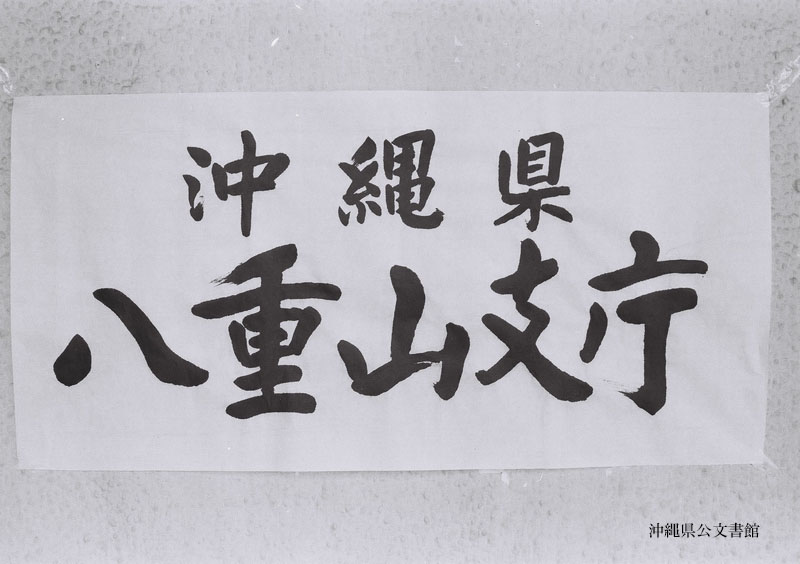 沖縄県
八重山支庁
沖縄県公文書館